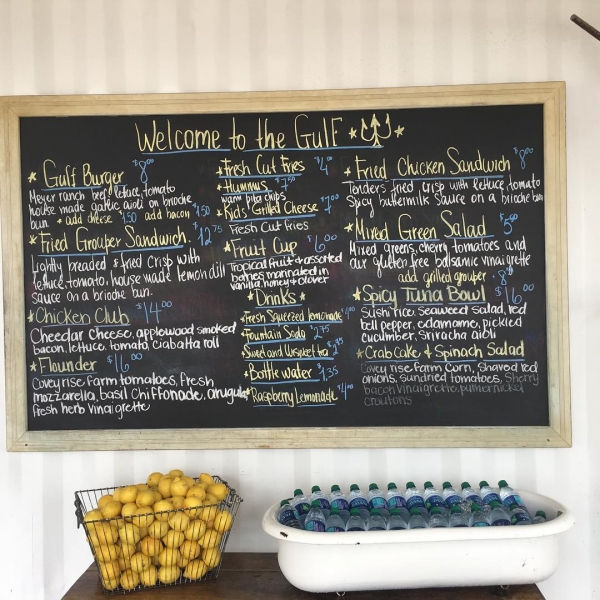 Welcome to the Gulf
Gulf Burger $8.00
Meyer ranch beef, lettuce, tomato
house made garlic aioli on brioche
bun. * add cheese $1.50 * add bacon $1.50
Fried Grouper Sandwich $12.75
Lightly breaded & fried crisp with
lettuce, tomato, house made lemon dill
sauce on a brioche bun.
Chicken Club $14.00
Cheedar cheese, applewood smoked
bacon, lettuce, tomato, ciabatta roll
Flounder $16.00
Covey rise farm tomatoes, fresh
mozzarella, basil chiffonade, arugula
fresh herb vinaigrette
Fresh Cut Fries $4.00
Hummus $7.50
warm pita chips
Kid's Grilled Cheese $7.00
Fresh Cut Fries
Fruit Cup $6.00
Tropical fruit + assorted
berries marinated in
vanilla, honey +
Drinks
Fresh Squeezed Lemonade
Fountain Soda $2.75
Sweet and Unsweet tea
Bottle water $1.35
Raspberry Lemonade $4.00
Fried Chicken Sandwich $8.00
Tenders fried crisp with lettuce, tomato
Spicy buttermilk sauce on a brioche bun
Mixed Green Salad $5.50
Mixed greens, cherry tomatoes and
our gluten free balsamic vinaigrette
add grilled grouper
Spicy Tuna Bowl $16.00
sushi rice, seaweed salad, red
bell pepper, edamame, pickled
cucumber, sriracha aioli
Crab cake & Spinach Salad
Covey rise farm corn, shaved red
onions, sundried tomatoes, Sherry
bacon vinaigrette, pumpernickel
croutons